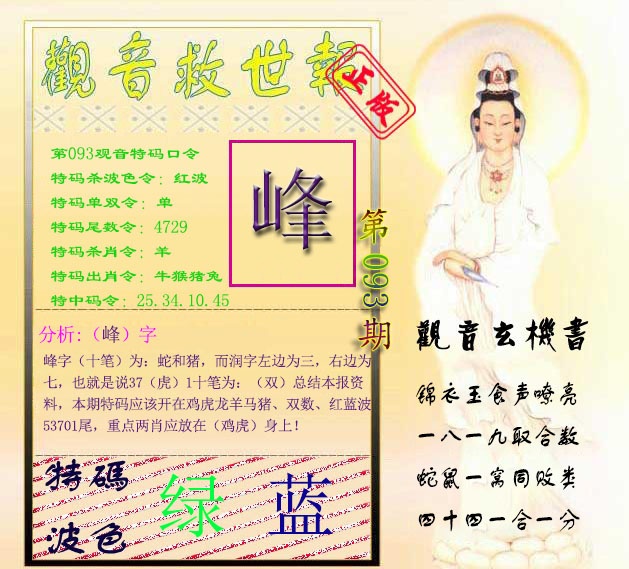 觀音救世報
正版
第093观音特码口令
特码杀波色令：红波
特码单双令：单
特码尾数令：4729
特码杀肖令：羊
特码出肖令：牛猴猪兔
特中码令：25.34.10.45
峰
第093期
分析:（峰）字
峰字（十笔）为：蛇和猪，而润字左边为三，右边为
七，也就是说37（虎）1十笔为：（双）总结本报资
料，本期特码应该开在鸡虎龙羊马猪、双数、红蓝波
53701尾，重点两肖应放在（鸡虎）身上！
特碼
波色
绿 蓝
觀音玄機書
锦衣玉食声嘹亮
一八一九取合数
蛇鼠一窝同败类
四十四一合一分